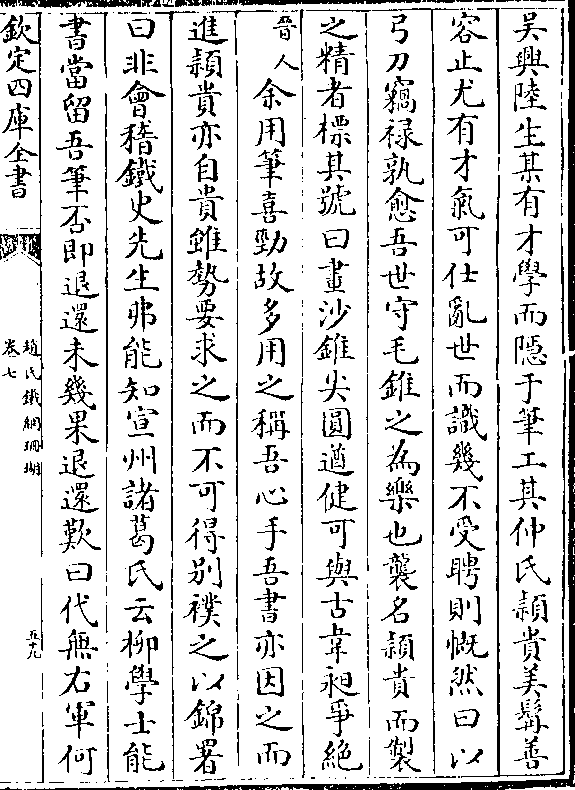 吳興陸生某有才學而隱于筆工其仲氏頴貴美髯善
容止尤有才氣可仕亂世而識幾不受聘則慨然曰以
弓刀竊祿孰愈吾世守毛錐之為樂也襲名頴貴而製
之精者標其號曰畫沙錐尖圓遒健可與古韋昶爭絶
晉人余用筆喜勁故多用之稱吾心手吾書亦因之而
進頴貴亦自貴錐勢要求之而不可得别襆之以錦署
曰非會稽鐵史先生弗能知宣州諸葛氏云柳學士能
書當留吾筆否即退還未幾果退還歎曰代無右軍何
欽定四庫全書
趙氏鐵網珊瑚
卷七
五十九